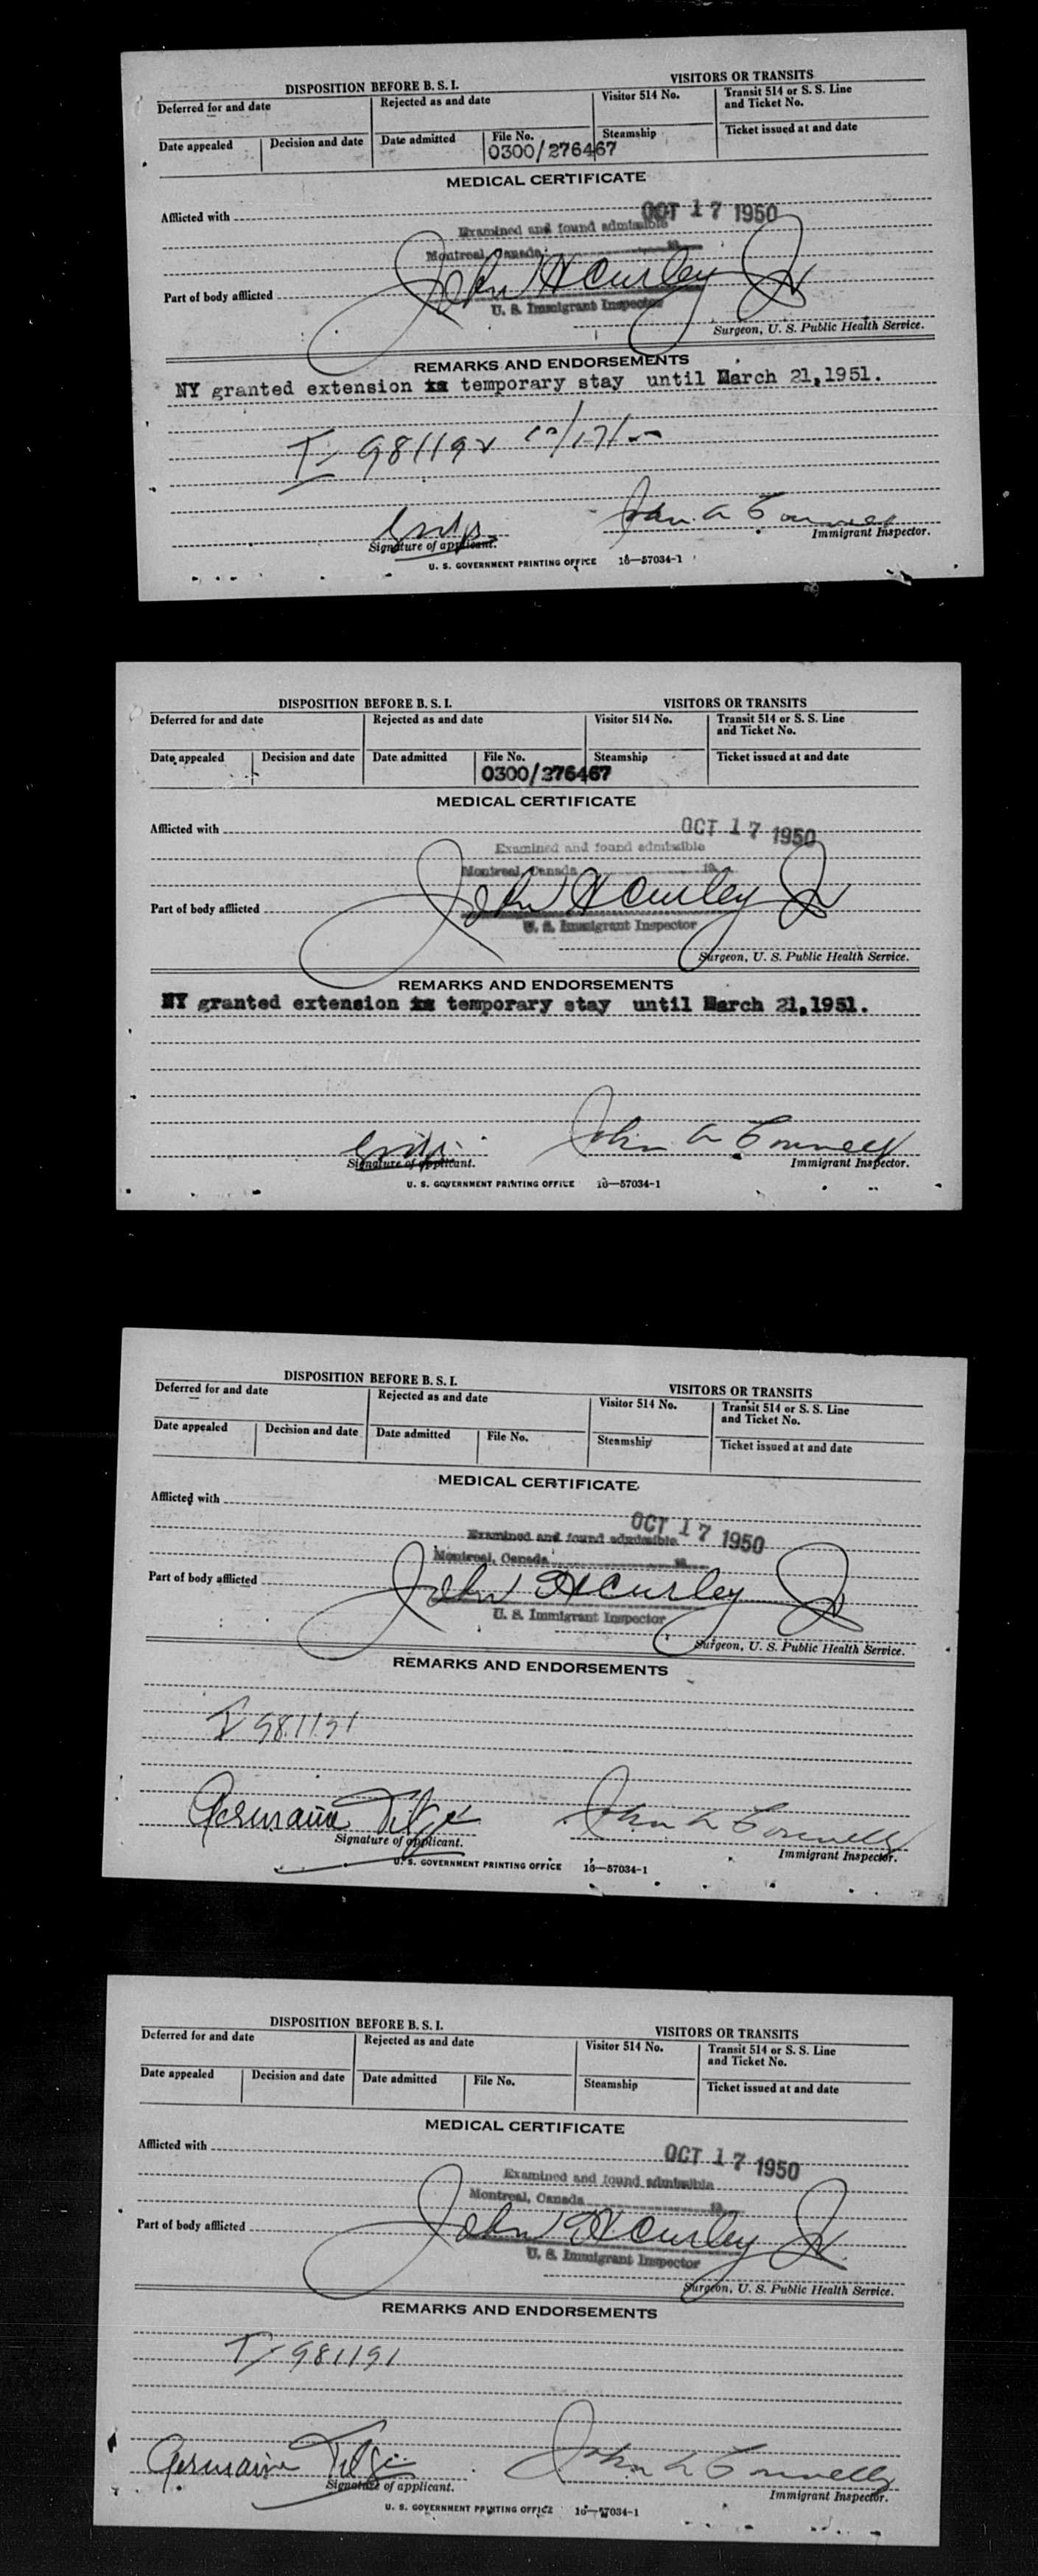 DISPOSITION BEFORE B. S. I. VISITORS OR TRANSITS
Deferred for and date Rejected as and date Visitor 514 No. Transit 514 or S. S. Line and Ticket No.
Date appealed Decision and date Date admitted File No. Steamship Ticket issued at and date
0300/276467
MEDICAL CERTIFICATE
Afflicted with
OCT 17 1950
Examined and found admissible
Montreal, Canada 19
Part of body afflicted
John H Curley Jr
U. S. Immigrant Inspector
Surgeon, U. S. Public Health Service.
REMARKS AND ENDORSEMENTS
NY granted extension temporary stay until March 21,1951.
T- 981192 10/17/50
John A Connell
Signature of applicant. Immigrant Inspector.
U. S. GOVERNMENT PRINTING OFFICE 16—57034-1
DISPOSITION BEFORE B. S. I. VISITORS OR TRANSITS
Deferred for and date Rejected as and date Visitor 514 No. Transit 514 or S. S. Line and Ticket No.
Date appealed Decision and date Date admitted File No. Steamship Ticket issued at and date
0300/276467
MEDICAL CERTIFICATE
Afflicted with
OCT 17 1950
Examined and found admissible
Montreal, Canada 19
Part of body afflicted
John H Curley Jr
U. S. Immigrant Inspector
Surgeon, U. S. Public Health Service.
REMARKS AND ENDORSEMENTS
NY granted extension temporary stay until March 21,1951.
John A Connell
Signature of applicant. Immigrant Inspector.
U. S. GOVERNMENT PRINTING OFFICE 16—57034-1
DISPOSITION BEFORE B. S. I. VISITORS OR TRANSITS
Deferred for and date Rejected as and date Visitor 514 No. Transit 514 or S. S. Line and Ticket No.
Date appealed Decision and date Date admitted File No. Steamship Ticket issued at and date
MEDICAL CERTIFICATE
Afflicted with
OCT 17 1950
Examined and found admissible
Montreal, Canada 19
Part of body afflicted
John H Curley Jr
U. S. Immigrant Inspector
Surgeon, U. S. Public Health Service.
REMARKS AND ENDORSEMENTS
T 981191
Germaine John A Connelly
Signature of applicant. Immigrant Inspector.
U. S. GOVERNMENT PRINTING OFFICE 16—57034-1
DISPOSITION BEFORE B. S. I. VISITORS OR TRANSITS
Deferred for and date Rejected as and date Visitor 514 No. Transit 514 or S. S. Line and Ticket No.
Date appealed Decision and date Date admitted File No. Steamship Ticket issued at and date
MEDICAL CERTIFICATE
Afflicted with
OCT 17 1950
Examined and found admissible
Montreal, Canada 19
Part of body afflicted
John H Curley Jr
U. S. Immigrant Inspector
Surgeon, U. S. Public Health Service.
REMARKS AND ENDORSEMENTS
T- 981191
Germaine John A Connelly
Signature of applicant. Immigrant Inspector.
U. S. GOVERNMENT PRINTING OFFICE 16—57034-1